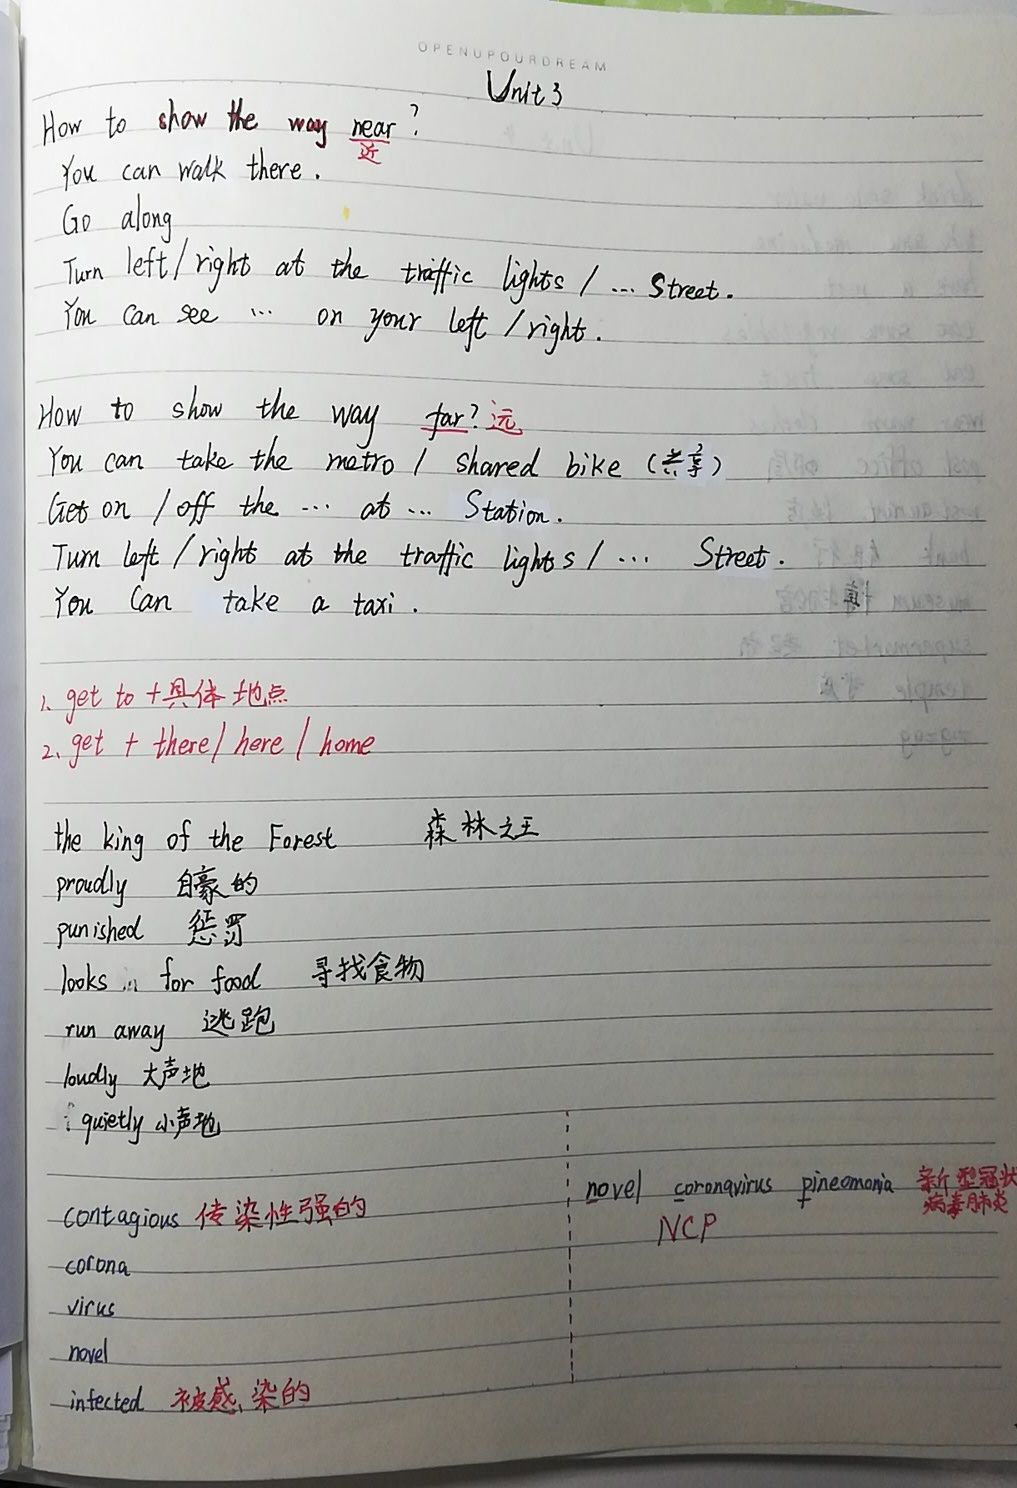 OPENUPOURDREAM
Unit 3
How to show the way near?
近
You can walk there.
Go along
Turn left/right at the traffic lights / ... Street.
You can see ... on your left / right.
How to show the way far? 远
You can take the metro / shared bike (共享)
Get on / off the ... at ... Station.
Turn left / right at the traffic lights / ... Street.
You Can take a taxi.
1. get to + 具体地点
2. get + there / here / home
the king of the Forest 森林之王
proudly 自豪的
punished 惩罚
looks for food 寻找食物
run away 逃跑
loudly 大声地
quietly 小声地
contagious 传染性强的
corona
virus
novel
infected 被感染的
novel coronavirus pineomonia 新型冠状
病毒肺炎
NCP